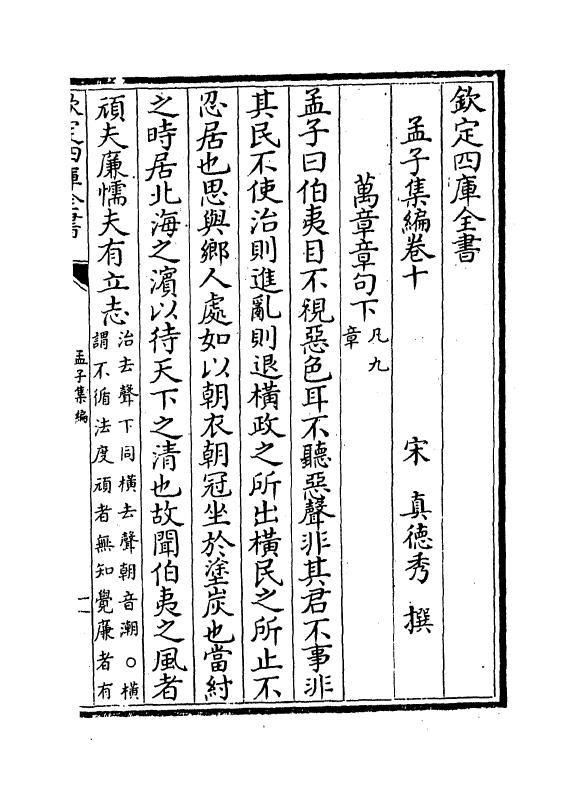 欽定四庫全書
孟子集編卷十
宋 真德秀 撰
萬章章句下凡九章
孟子曰伯夷目不視惡色耳不聽惡聲非其君不事非
其民不使治則進亂則退橫政之所出橫民之所止不
忍居也思與鄉人處如以朝衣朝冠坐於塗炭也當紂
之時居北海之濵以待天下之清也故聞伯夷之風者
頑夫廉懦夫有立志治去聲下同橫去聲朝音潮○橫
謂不循法度頑者無知覺廉者有
欽定四庫全書
孟子集編
一